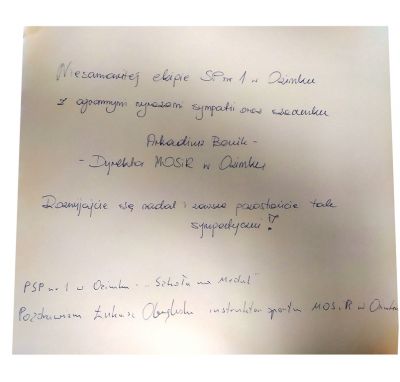 Niesamowitej ekipie SP nr 1 w Ozimku
z ogromnymi wyrazami sympatii oraz szacunku
Arkadiusz Banik -
- Dyrektor MOSiR w Ozimku
Rozwijajcie się nadal i zawsze pozostańcie tak
sympatyczni!
PSP nr 1 w Ozimku - "Szkoła na Medal"
Pozdrawiam Łukasz instruktor sportu MOSiR w Ozimku